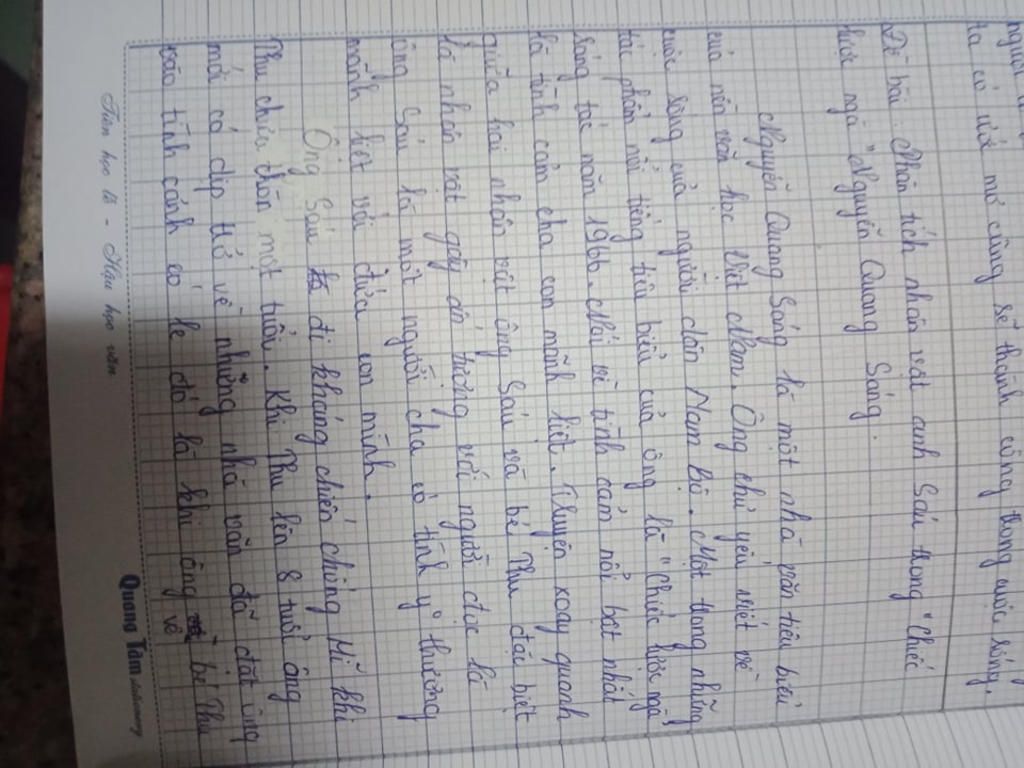 người
ta có ước mơ cũng sẽ thành công trong cuộc sống.
Đề bài. Phân tích nhân vật anh Sáu trong "Chiếc
lược ngà" Nguyễn Quang Sáng.
Nguyễn Quang Sáng là một nhà văn tiêu biểu
của nền văn học Việt Nam. Ông chủ yếu viết về
cuộc sống của người dân Nam Bộ. Một trong những
tác phẩm nổi tiếng tiêu biểu của ông là "Chiếc lược ngà"
sáng tác năm 1966. Nói về tình cảm nổi bật nhất
là tình cảm cha con mãnh liệt. Truyện xoay quanh
giữa hai nhân vật ông Sáu và bé Thu đặc biệt
là nhân vật gây ấn tượng với người đọc là
ông Sáu là một người cha có tình yº thương
mãnh liệt với đứa con mình.
Ông Sáu đi kháng chiến chống Mĩ khi
Thu chưa tròn một tuổi. Khi Thu lên 8 tuổi ông
mới có dịp về những nhà văn đã đặt ông
vào tình cảnh éo le đó là khi ông về bé Thu
Tiên học lễ - Hậu học văn
Quang Tâm stationery